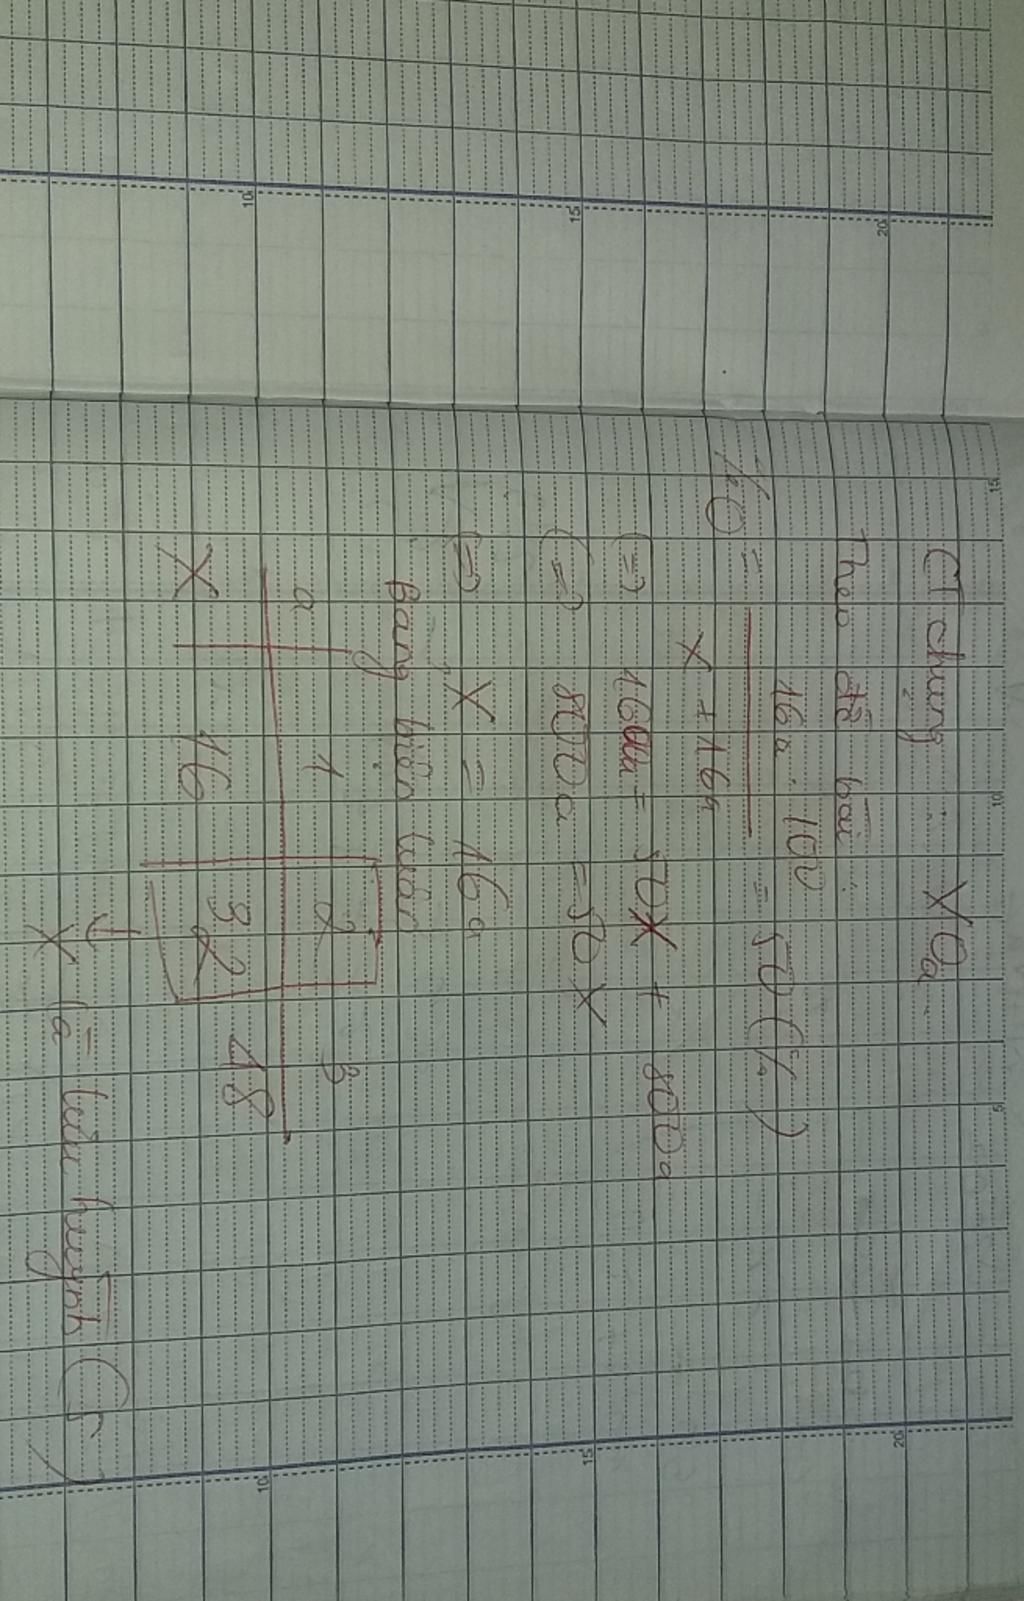 CT chung : XOa
Theo đề bài :
%O = 16a . 100 / X + 16a = 50 (%)
(=) 1600a = 50X + 800a
(=) 800a = 50X
(=) X = 16a
Bảng biện luận
a 1 2 3
X 16 32 48
↓
X là lưu huỳnh (S)
10 15 20
15 10 5
10 15 20